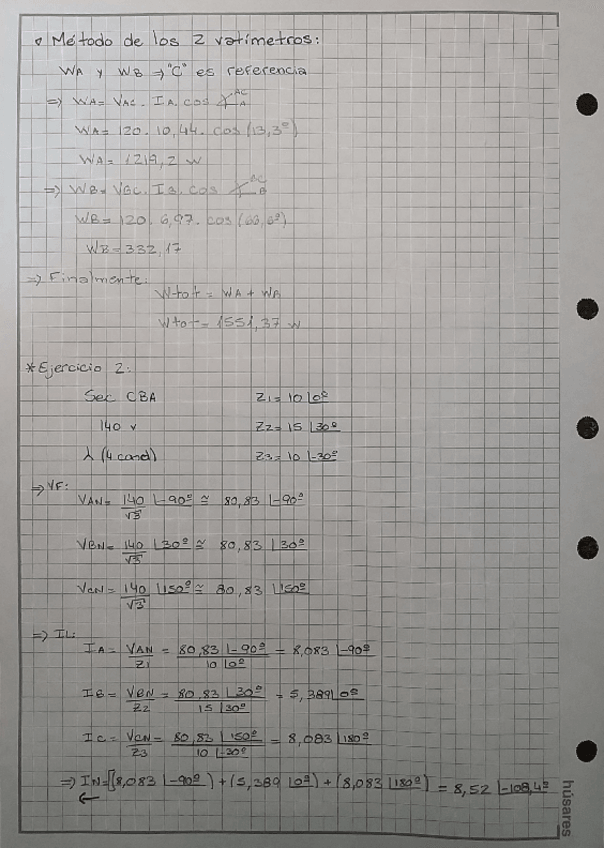 • Método de los 2 vatímetros:
WA y WB → "C" es referencia
⇒ WA = VAC . IA . cos ∡ AC A
WA = 120 . 10,44 . cos (13,3º)
WA = 1219,2 w
⇒ WB = VBC . IB . cos ∡ BC B
WB = 120 . 6,97 . cos (66,6º)
WB = 332,17
⇒ Finalmente:
Wtot = WA + WB
Wtot = 1551,37 w
* Ejercicio 2:
Sec CBA Z1 = 10 |0º
140 v Z2 = 15 |30º
⅄ (4 cond) Z3 = 10 |-30º
⇒ VF:
VAN = 140/√3 |-90º ≅ 80,83 |-90º
VBN = 140/√3 |30º ≅ 80,83 |30º
VCN = 140/√3 |150º ≅ 80,83 |150º
⇒ IL:
IA = VAN/Z1 = 80,83 |-90º / 10 |0º = 8,083 |-90º
IB = VBN/Z2 = 80,83 |30º / 15 |30º = 5,389 |0º
IC = VCN/Z3 = 80,83 |150º / 10 |-30º = 8,083 |180º
⇒ IN = [(8,083 |-90º) + (5,389 |0º) + (8,083 |180º) = 8,52 |-108,4º
←
húsares